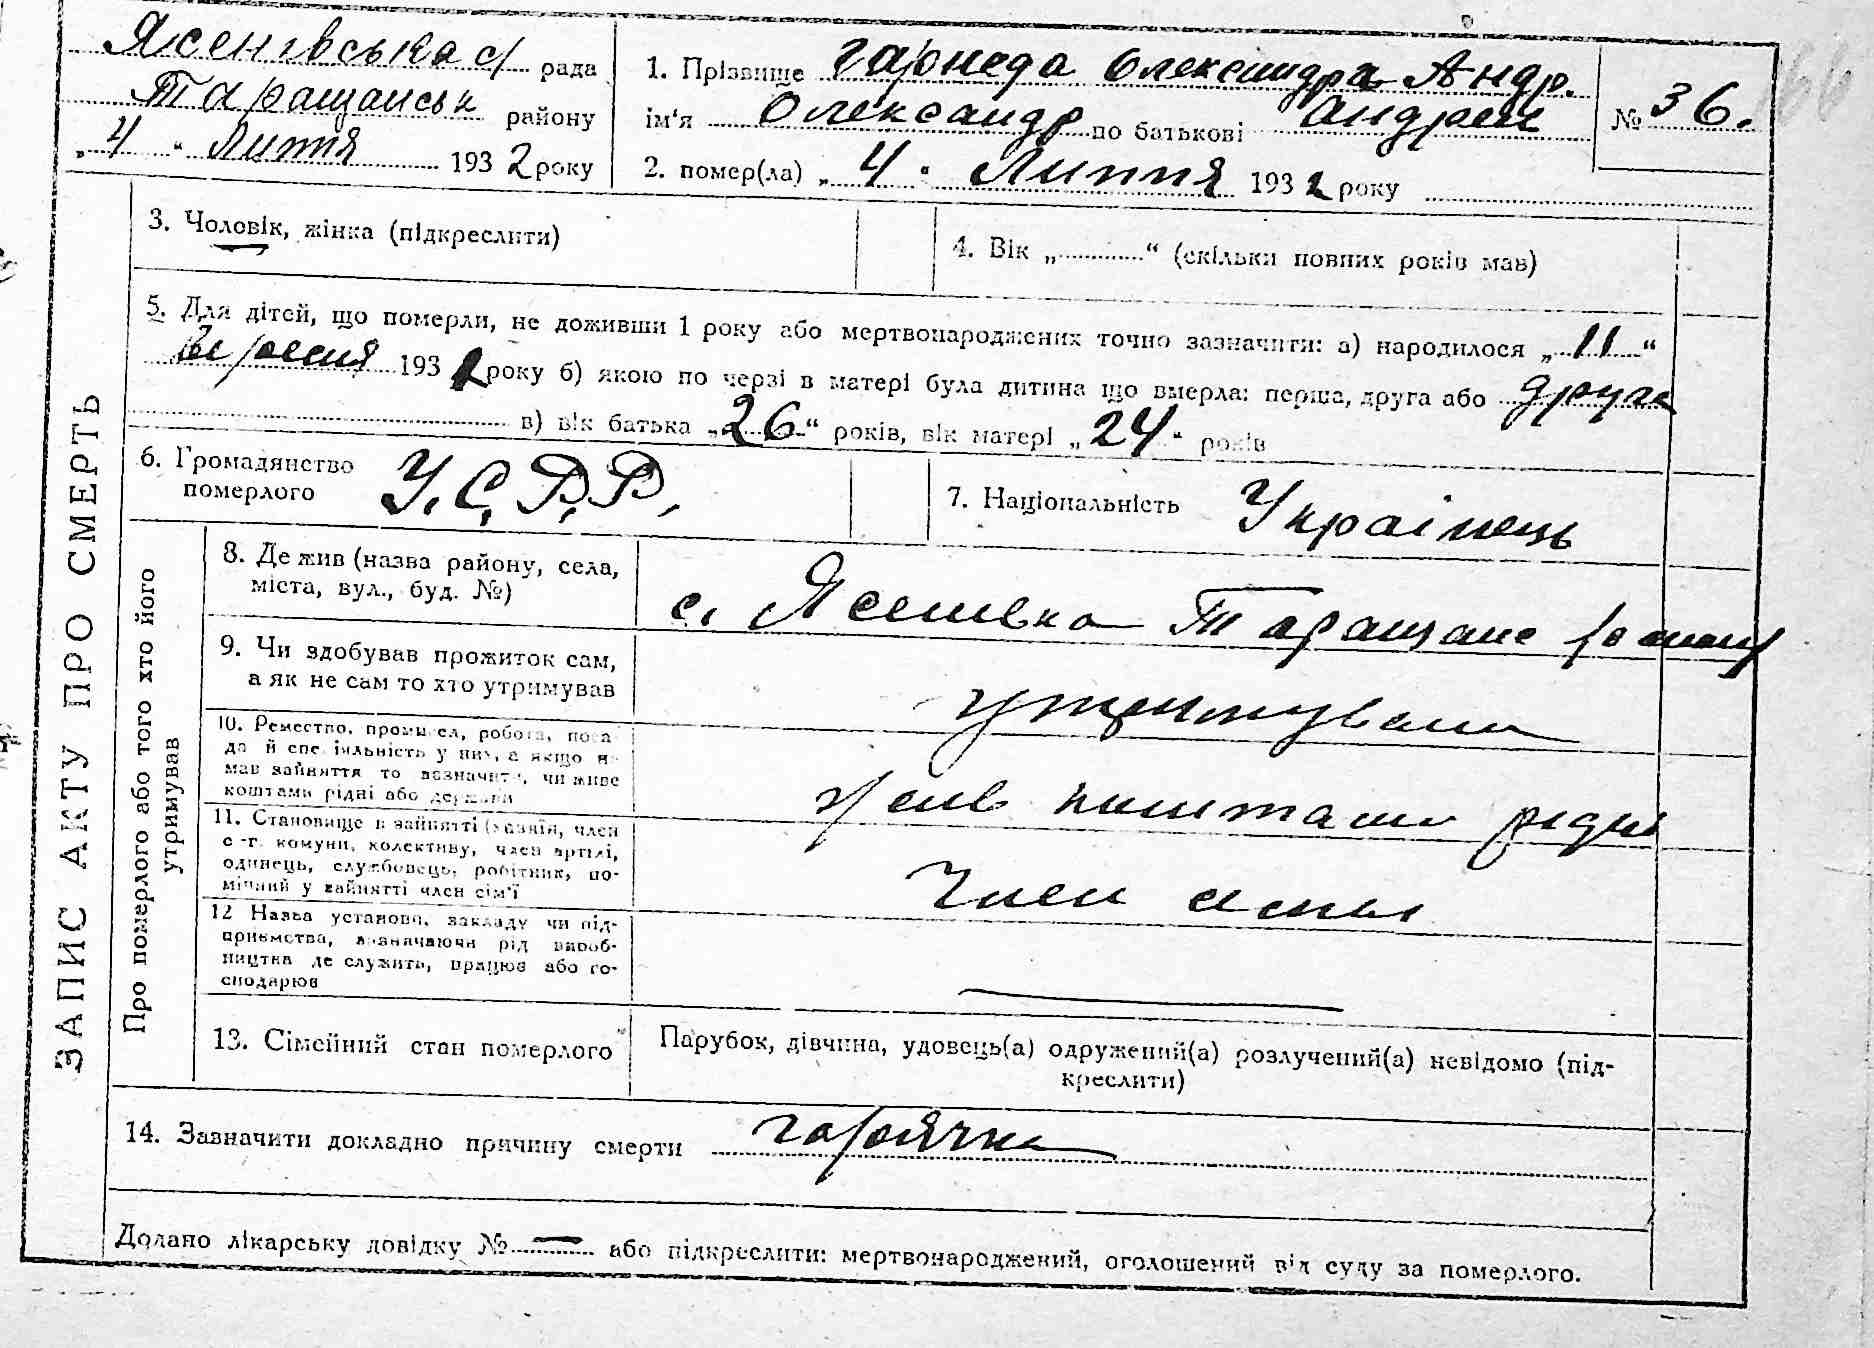 Ясенівська с/ рада
Таращанськ району
„4“ Липня 1932 року
1. Прізвище Гарнеда Олександра Андр.
ім'я Олександр по батькові Андрей
№ 36.
2. помер(ла) „4“ Липня 1932 року
3. Чоловік, жінка (підкреслити)
4. Вік „............“ (скільки повних років мав)
5. Для дітей, що померли, не доживши 1 року або мертвонароджених точно зазначити: а) народилося „11“
Вересня 193 року б) якою по черзі в матері була дитина що вмерла: перша, друга або друга
в) вік батька „26“ років, вік матері „24“ років
6. Громадянство
померлого У.С.Р.Р.
7. Національність Українець
ЗАПИС АКТУ ПРО СМЕРТЬ
Про померлого або того хто його
утримував
8. Де жив (назва району, села,
міста, вул., буд. №)
с. Ясенівка Таращанс району
9. Чи здобував прожиток сам,
а як не сам то хто утримував
утримували
10. Ремество, промисел, робота, поса-
да й спеціальність у них, а якщо не
мав зайняття то зазначити, чи живе
коштами рідні або держави
жив коштами рідні
11. Становище в зайнятті (хазяїн, член
с.-г. комуни, колективу, член артілі,
одинець, службовець, робітник, по-
мічний у зайнятті член сім'ї
Член
12 Назва установи, закладу чи під-
приємства, визначаючи рід вироб-
ництва де служить, працює або го-
сподарює
13. Сімейний стан померлого
Парубок, дівчина, удовець(а) одружений(а) розлучений(а) невідомо (під-
креслити)
14. Зазначити докладно причину смерти горячка
Додано лікарську довідку № — або підкреслити: мертвонароджений, оголошений від суду за померлого.